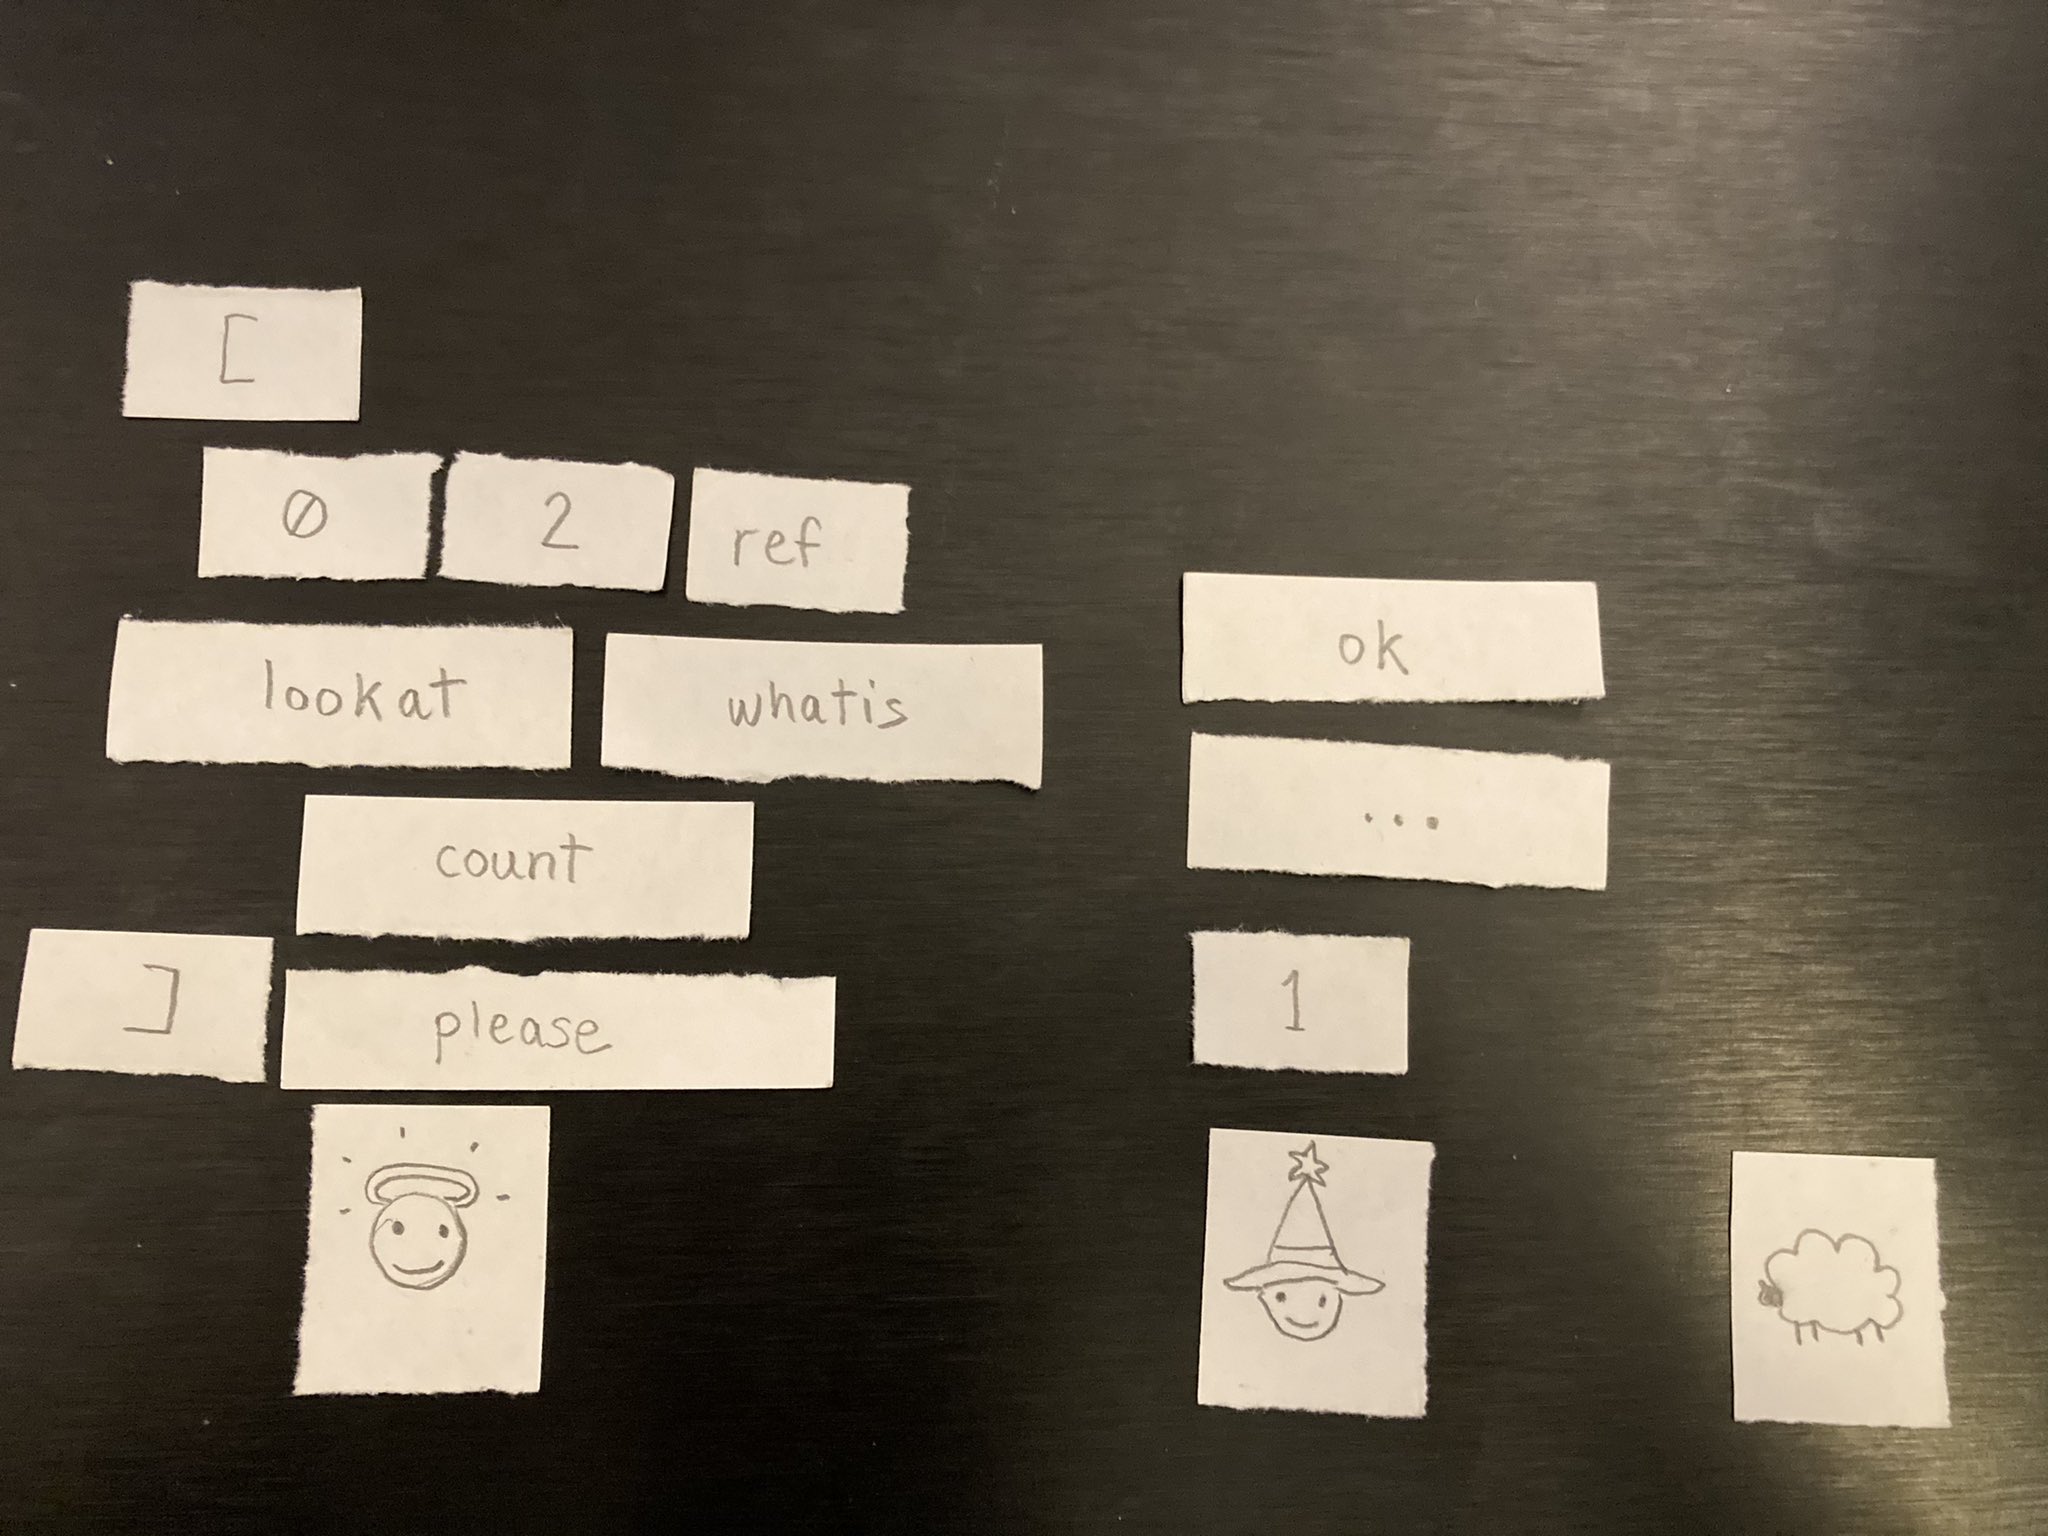 [
0 2 ref
lookat whatis
count
] please
ok
...
1